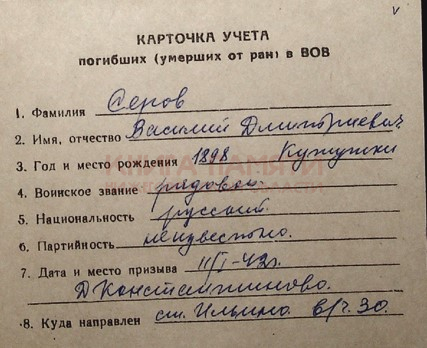 КАРТОЧКА УЧЕТА
погибших (умерших от ран) в ВОВ
1. Фамилия Серов
2. Имя, отчество Василий Дмитриевич
3. Год и место рождения 1898
4. Воинское звание рядовой.
5. Национальность русский.
6. Партийность неизвестно.
7. Дата и место призыва 11/I-42г.
Д Константиново.
8. Куда направлен ст. Ильино в/ч. 30.
КНИГА ПАМЯТИ